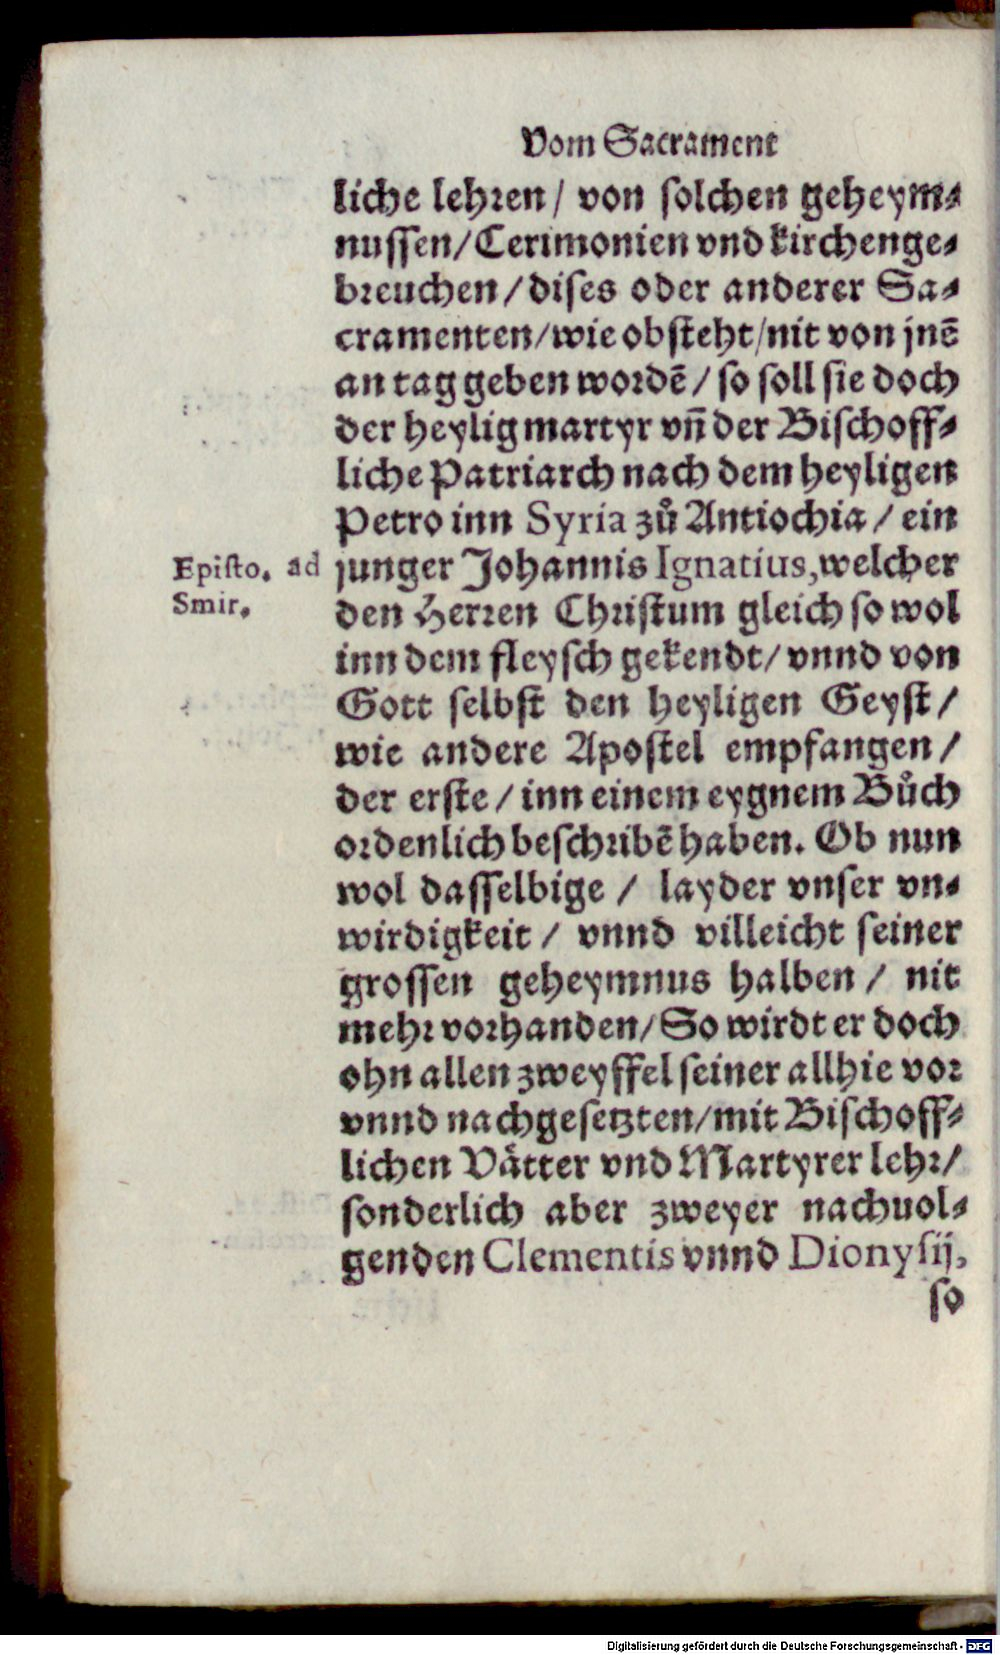 Vom Sacrament
liche lehren/ von solchen geheym-
nussen/Cerimonien vnd kirchenge-
breuchen/dises oder anderer Sa-
cramenten/wie obsteht/nit von jnē
an tag geben wordē/ so soll sie doch
der heylig martyr vn̄ der Bischoff-
liche Patriarch nach dem heyligen
Petro inn Syria zů Antiochia/ ein
Episto. ad
Smir.
junger Johannis Ignatius, welcher
den Herren Christum gleich so wol
inn dem fleysch gekendt/ vnnd von
Gott selbst den heyligen Geyst/
wie andere Apostel empfangen/
der erste/ inn einem eygnem Bůch
ordenlich beschribē haben. Ob nun
wol dasselbige/ layder vnser vn-
wirdigkeit/ vnnd villeicht seiner
grossen geheymnus halben/ nit
mehr vorhanden/So wirdt er doch
ohn allen zweyffel seiner allhie vor
vnnd nachgesetzten/mit Bischoff-
lichen Vätter vnd Martyrer lehr/
sonderlich aber zweyer nachuol-
genden Clementis vnnd Dionysij,
so
Digitalisierung gefördert durch die Deutsche Forschungsgemeinschaft - DFG